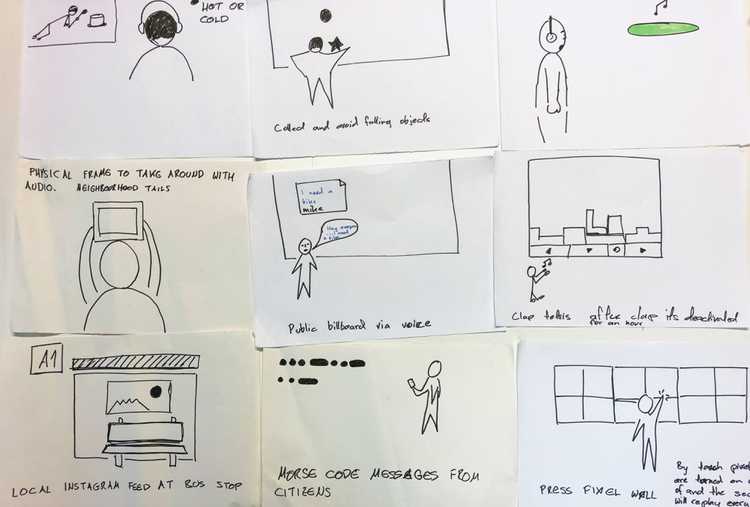 HOT OR
COLD
Collect and avoid falling objects
PHYSICAL FRAME TO TAKE AROUND WITH
AUDIO. NEIGHBOURHOOD TAILS
I need a
bike
mike
Hey
I need
a bike
Public billboard via voice
Clap tetris after clap its deactivated
for an hour
A1
LOCAL INSTAGRAM FEED AT BUS STOP
MORSE CODE MESSAGES FROM
CITIZENS
PRESS PIXEL WALL
By touch pixel
are turned on
of and the
will replay